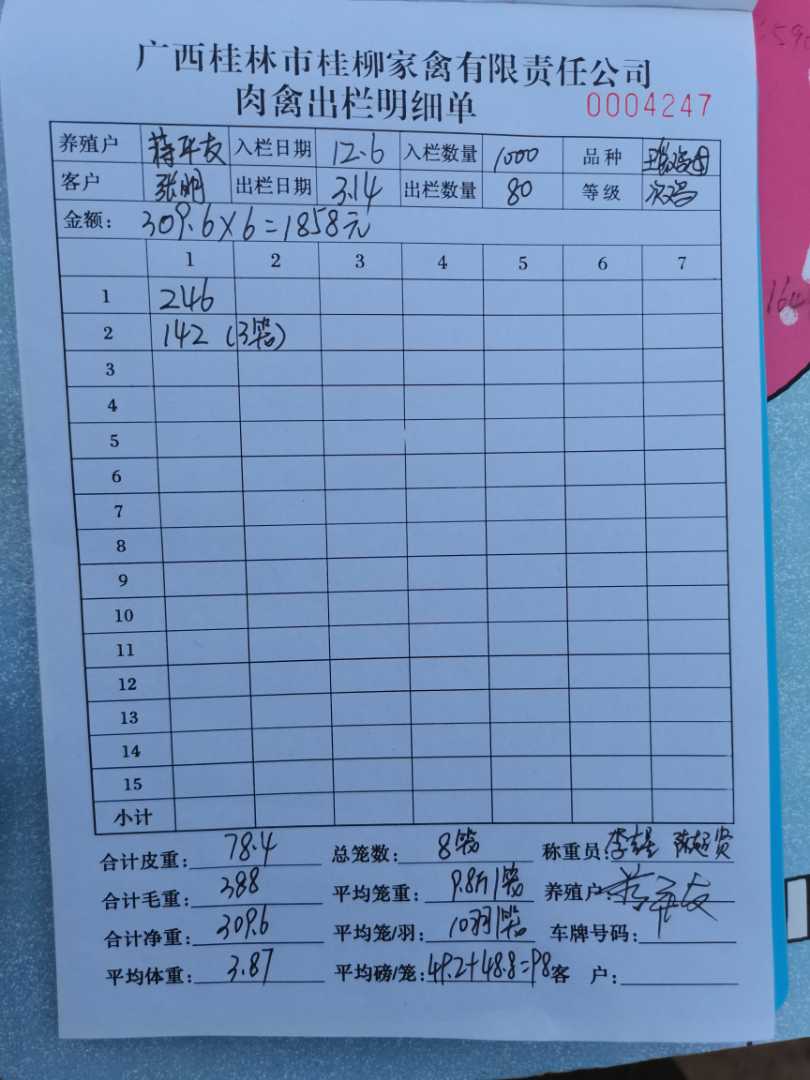 广西桂林市桂柳家禽有限责任公司
肉禽出栏明细单 0004247
养殖户 蒋平友 入栏日期 12.6 入栏数量 1000 品种
客户 张明 出栏日期 3.14 出栏数量 80 等级 次鸡
金额: 309.6×6=1858元
1 2 3 4 5 6 7
1 246
2 142 (3笼)
3
4
5
6
7
8
9
10
11
12
13
14
15
小计
合计皮重: 78.4 总笼数: 8笼 称重员:
合计毛重: 388 平均笼重: 9.8斤/笼 养殖户: 蒋平友
合计净重: 309.6 平均笼/羽: 10羽/笼 车牌号码:
平均体重: 3.87 平均磅/笼: 49.2+48.8=98 客 户: